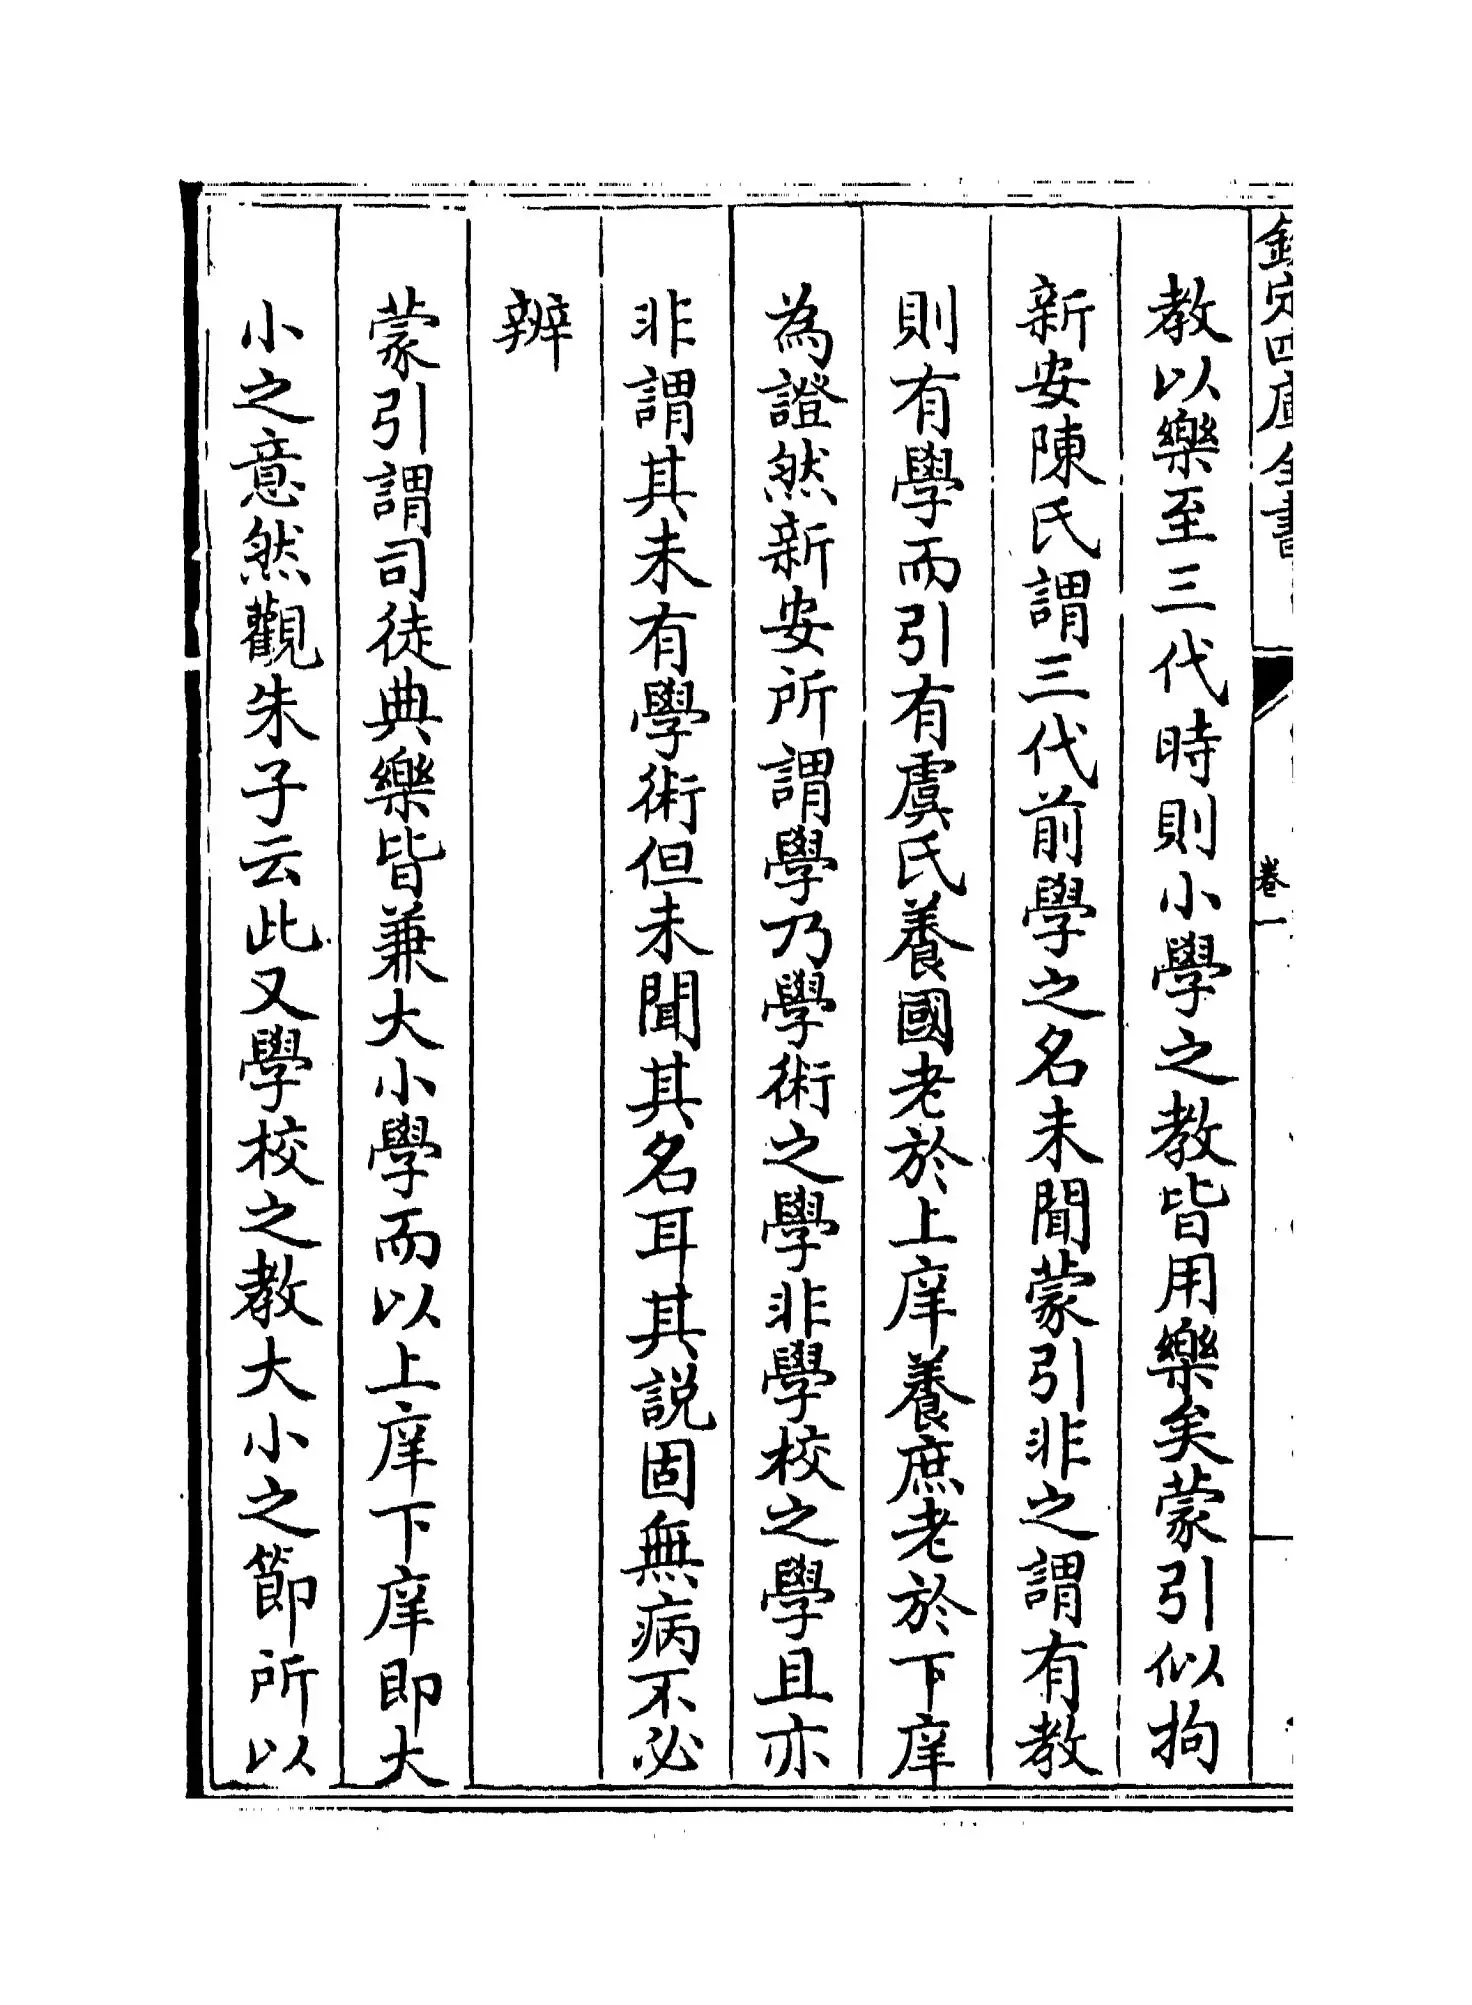 欽定四庫全書
卷一
教以樂至三代時則小學之教皆用樂矣蒙引似拘
新安陳氏謂三代前學之名未聞蒙引非之謂有教
則有學而引有虞氏養國老於上庠養庶老於下庠
為證然新安所謂學乃學術之學非學校之學且亦
非謂其未有學術但未聞其名耳其説固無病不必
辨
蒙引謂司徒典樂皆兼大小學而以上庠下庠即大
小之意然觀朱子云此又學校之教大小之節所以